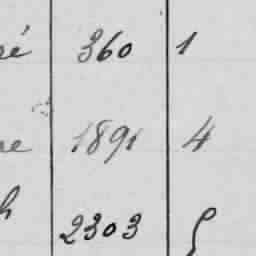 ré 360 1
re 1891 4
h 2303